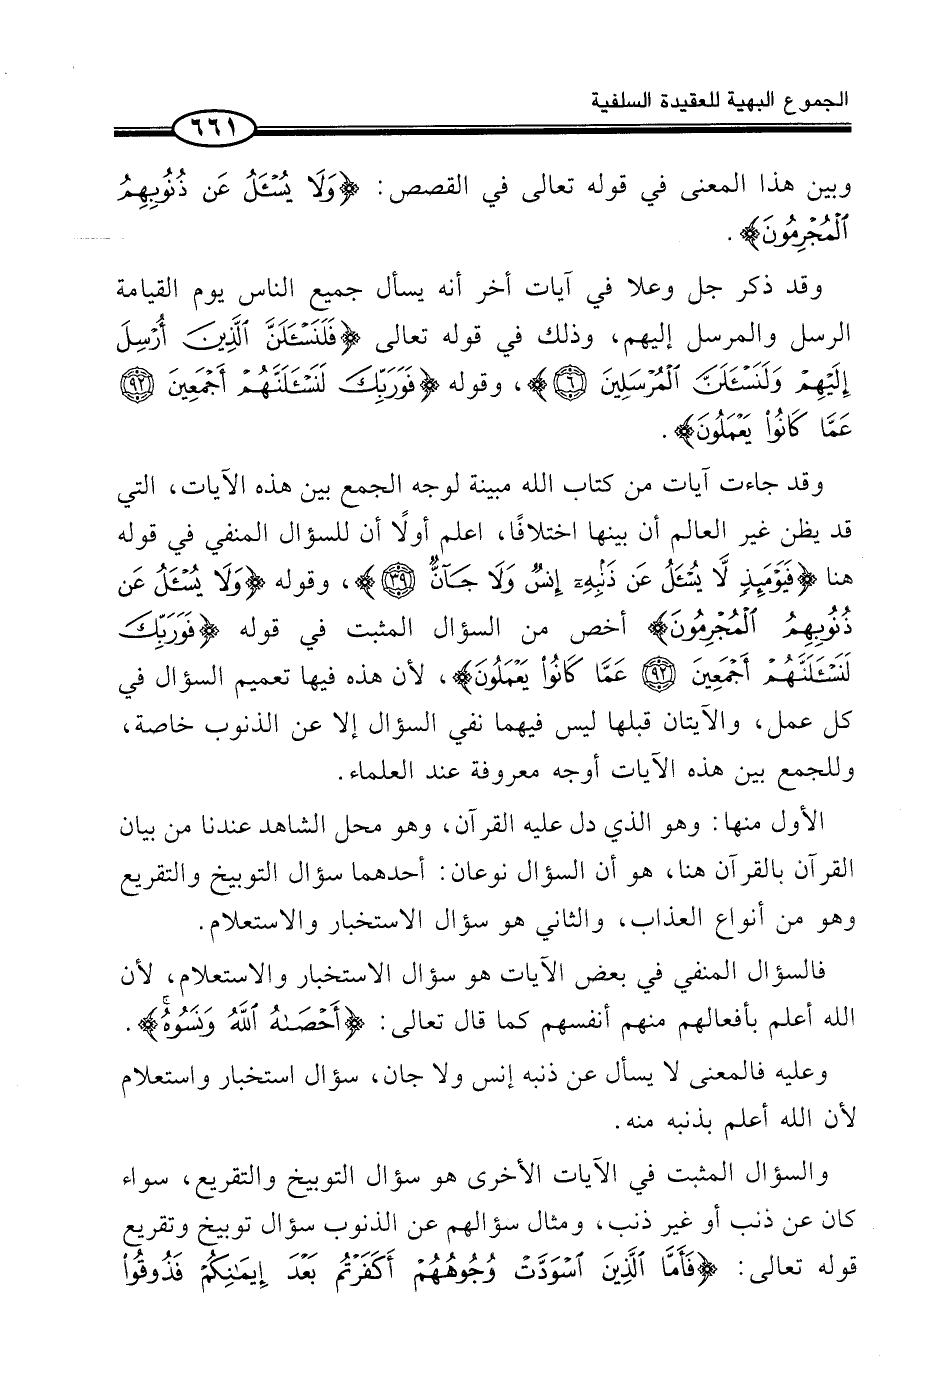 الجموع البهية للعقيدة السلفية
٦٦١
وبين هذا المعنى في قوله تعالى في القصص: ﴿وَلَا يُسْـَٔلُ عَن ذُنُوبِهِمُ
ٱلْمُجْرِمُونَ﴾.
وقد ذكر جل وعلا في آيات أخر أنه يسأل جميع الناس يوم القيامة
الرسل والمرسل إليهم، وذلك في قوله تعالى ﴿فَلَنَسْـَٔلَنَّ ٱلَّذِينَ أُرْسِلَ
إِلَيْهِمْ وَلَنَسْـَٔلَنَّ ٱلْمُرْسَلِينَ ٦﴾، وقوله ﴿فَوَرَبِّكَ لَنَسْـَٔلَنَّهُمْ أَجْمَعِينَ ٩٢
عَمَّا كَانُوا۟ يَعْمَلُونَ﴾.
وقد جاءت آيات من كتاب الله مبينة لوجه الجمع بين هذه الآيات، التي
قد يظن غير العالم أن بينها اختلافًا، اعلم أولًا أن للسؤال المنفي في قوله
هنا ﴿فَيَوْمَئِذٍ لَّا يُسْـَٔلُ عَن ذَنۢبِهِۦٓ إِنسٌ وَلَا جَآنٌّ ٣٩﴾، وقوله ﴿وَلَا يُسْـَٔلُ عَن
ذُنُوبِهِمُ ٱلْمُجْرِمُونَ﴾ أخص من السؤال المثبت في قوله ﴿فَوَرَبِّكَ
لَنَسْـَٔلَنَّهُمْ أَجْمَعِينَ ٩٢ عَمَّا كَانُوا۟ يَعْمَلُونَ﴾، لأن هذه فيها تعميم السؤال في
كل عمل، والآيتان قبلها ليس فيهما نفي السؤال إلا عن الذنوب خاصة،
وللجمع بين هذه الآيات أوجه معروفة عند العلماء.
الأول منها: وهو الذي دل عليه القرآن، وهو محل الشاهد عندنا من بيان
القرآن بالقرآن هنا، هو أن السؤال نوعان: أحدهما سؤال التوبيخ والتقريع
وهو من أنواع العذاب، والثاني هو سؤال الاستخبار والاستعلام.
فالسؤال المنفي في بعض الآيات هو سؤال الاستخبار والاستعلام، لأن
الله أعلم بأفعالهم منهم أنفسهم كما قال تعالى: ﴿أَحْصَىٰهُ ٱللَّهُ وَنَسُوهُ ۚ﴾.
وعليه فالمعنى لا يسأل عن ذنبه إنس ولا جان، سؤال استخبار واستعلام
لأن الله أعلم بذنبه منه.
والسؤال المثبت في الآيات الأخرى هو سؤال التوبيخ والتقريع، سواء
كان عن ذنب أو غير ذنب، ومثال سؤالهم عن الذنوب سؤال توبيخ وتقريع
قوله تعالى: ﴿فَأَمَّا ٱلَّذِينَ ٱسْوَدَّتْ وُجُوهُهُمْ أَكَفَرْتُم بَعْدَ إِيمَـٰنِكُمْ فَذُوقُوا۟